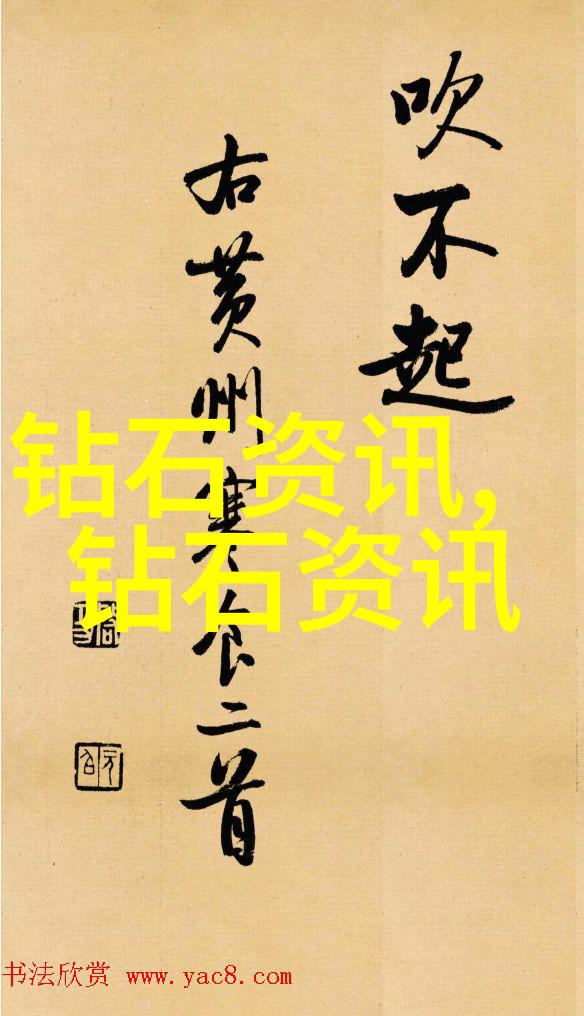 吹不起
右黄州寒食二首
钻石资讯,
钻石资讯
书法欣赏 www.yac8.com